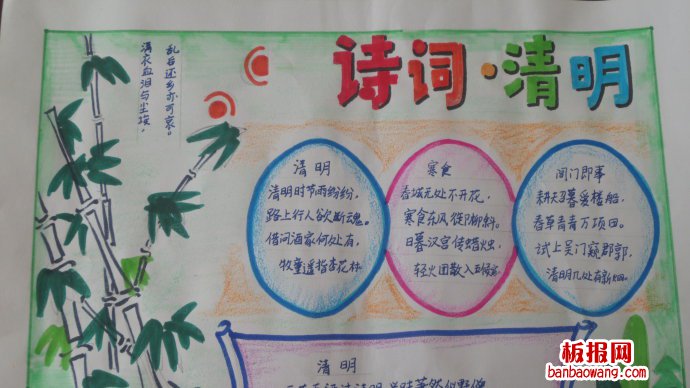 满衣血泪与尘埃，
乱后还乡亦可哀。
诗词·清明
清明
清明时节雨纷纷，
路上行人欲断魂。
借问酒家何处有，
牧童遥指杏花林
寒食
春城无处不开花，
寒食东风御柳斜。
日暮汉宫传蜡烛，
轻火团散入五侯家
闾门即事
耕夫召暮爱楼船，
春草青青万项田。
试上吴门窥郡郭，
清明几处有新烟。
清明
板报网
banbaowang.com